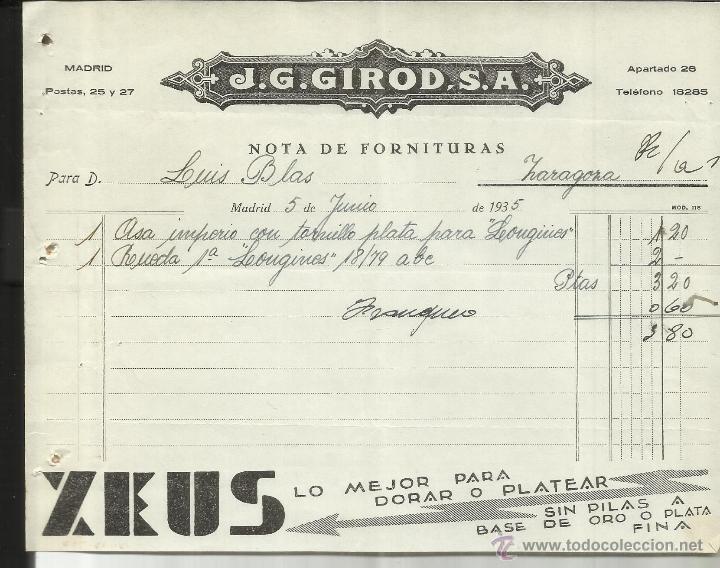 MADRID
Postas, 25 y 27
J. G. GIROD, S. A.
Apartado 26
Teléfono 18285
NOTA DE FORNITURAS
Para D. Luis Blas Zaragoza
Madrid 5 de Junio de 1935 MOD. 118
1 Asa imperio con tornillo plata para "Longines" 1 20
1 Rueda 1ª "Longines" 18/79 abc 2 -
Ptas 3 20
Franqueo 0 60
3 80
ZEUS
LO MEJOR PARA
DORAR O PLATEAR
SIN PILAS A
BASE DE ORO O PLATA
FINA
www.todocoleccion.net